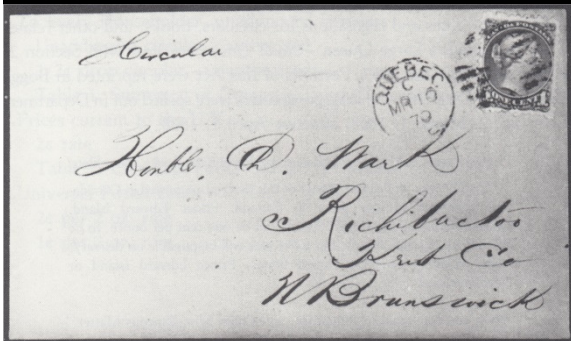 Circular
QUEBEC
C
MR 10
70
Honble. D. Wark
Richibuctoo
Kent Co
N Brunswick